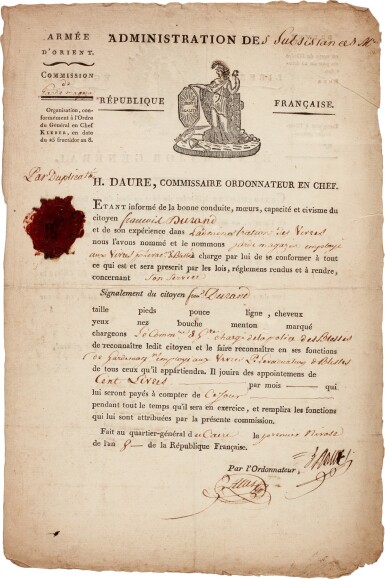 ARMÉE
D'ORIENT.
COMMISSION
de
Organisation, con-
formément à l'Ordre
du Général en Chef
KLEBER, en date
du 26 fructidor an 8.
ADMINISTRATION DES Subsistances
RÉPUBLIQUE FRANÇAISE.
Par Duplicata
H. DAURE, COMMISSAIRE ORDONNATEUR EN CHEF.
ETANT informé de la bonne conduite, mœurs, capacité et civisme du
citoyen Durand
et de son expérience dans L'administration des Vivres
nous l'avons nommé et le nommons garde magazin employé
aux Vivres à charge par lui de se conformer à tout
ce qui est et sera prescrit par les lois, réglemens rendus et à rendre,
concernant Son Service
Signalement du citoyen Durand
taille pieds pouce ligne, cheveux
yeux nez bouche menton marqué
chargeons Le Comm. chargé de la police des
de reconnaître ledit citoyen et le faire reconnaître en ses fonctions
de employé aux Vivres
de tous ceux qu'il appartiendra. Il jouira des appointemens de
Cent Livres par mois qui
lui seront payés à compter de Ce Jour
pendant tout le temps qu'il sera en exercice, et remplira les fonctions
qui lui sont attribuées par la présente commission.
Fait au quartier-général du Caire le premier Nivose
de l'an 8 de la République Française.
Par l'Ordonnateur
Daure